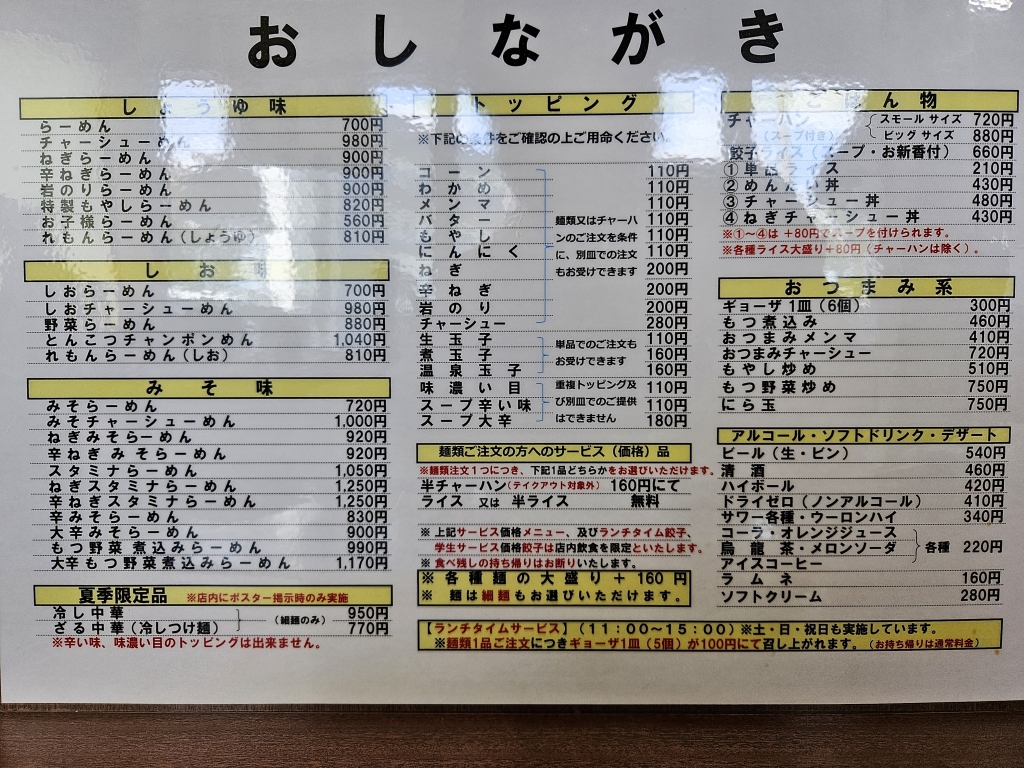 おしながき
しょうゆ味
らーめん 700円
チャーシューめん 980円
ねぎらーめん 900円
辛ねぎらーめん 900円
岩のりらーめん 900円
特製もやしらーめん 820円
お子様らーめん 560円
れもんらーめん（しょうゆ） 810円
しお味
しおらーめん 700円
しおチャーシューめん 980円
野菜らーめん 880円
とんこつチャンポンめん 1,040円
れもんらーめん（しお） 810円
みそ味
みそらーめん 720円
みそチャーシューめん 1,000円
ねぎみそらーめん 920円
辛ねぎみそらーめん 920円
スタミナらーめん 1,050円
ねぎスタミナらーめん 1,250円
辛ねぎスタミナらーめん 1,250円
辛みそらーめん 830円
大辛みそらーめん 900円
もつ野菜煮込みらーめん 990円
大辛もつ野菜煮込みらーめん 1,170円
夏季限定品 ※店内にポスター掲示時のみ実施
冷し中華 950円
ざる中華（冷しつけ麺） 770円
（細麺のみ）
※辛い味、味濃い目のトッピングは出来ません。
トッピング
※下記の条件をご確認の上ご用命ください。
コーン 110円
わかめ 110円
メンマ 110円
バター 110円
もやし 110円
にんにく 110円
ねぎ 200円
辛ねぎ 200円
岩のり 200円
チャーシュー 280円
麺類又はチャーハ
ンのご注文を条件
に、別皿での注文
もお受けできます
生玉子 110円
煮玉子 160円
温泉玉子 160円
単品でのご注文も
お受けできます
味濃い目 110円
スープ辛い味 110円
スープ大辛 180円
重複トッピング及
び別皿でのご提供
はできません
麺類ご注文の方へのサービス（価格）品
※麺類注文１つにつき、下記1品どちらかをお選びいただけます。
半チャーハン（テイクアウト対象外） 160円にて
ライス 又は 半ライス 無料
※ 上記サービス価格メニュー、及びランチタイム餃子、
学生サービス価格餃子は店内飲食を限定といたします。
※ 食べ残しの持ち帰りはお断りいたします。
※ 各種麺の大盛り＋160円
※ 麺は細麺もお選びいただけます。
ごはん物
チャーハン（スープ付き） スモールサイズ 720円
ビッグサイズ 880円
餃子ライス（スープ・お新香付） 660円
①単品ライス 210円
②めんたい丼 430円
③チャーシュー丼 480円
④ねぎチャーシュー丼 430円
※①～④は ＋80円でスープを付けられます。
※各種ライス大盛り＋80円（チャーハンは除く）。
おつまみ系
ギョーザ1皿（6個） 300円
もつ煮込み 460円
おつまみメンマ 410円
おつまみチャーシュー 720円
もやし炒め 510円
もつ野菜炒め 750円
にら玉 750円
アルコール・ソフトドリンク・デザート
ビール（生・ビン） 540円
清酒 460円
ハイボール 420円
ドライゼロ（ノンアルコール） 410円
サワー各種・ウーロンハイ 340円
コーラ・オレンジジュース
烏龍茶・メロンソーダ
アイスコーヒー
各種 220円
ラムネ 160円
ソフトクリーム 280円
【ランチタイムサービス】（11：00～15：00）※土・日・祝日も実施しています。
※麺類1品ご注文につきギョーザ1皿（5個）が100円にて召し上がれます。（お持ち帰りは通常料金）